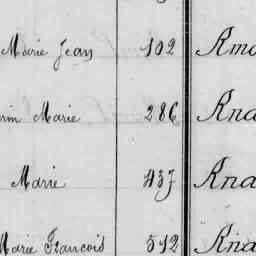 Marie Jean 102 Rma
rim Marie 286 Rna
Marie 437 Rna
Marie Francois 512 Rna